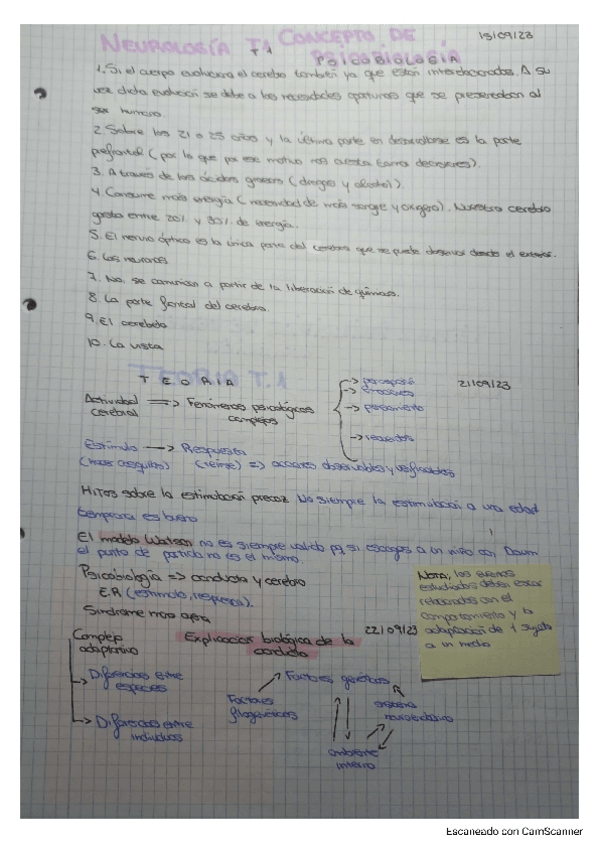 NEUROLOGÍA T1 CONCEPTO DE
PSICOBIOLOGÍA
15/09/23
1. Si el cuerpo evoluciona el cerebro también ya que están interrelacionados. A su
vez dicha evolución se debe a las necesidades oportunas que se presentaban al
ser humano.
2. Sobre los 21 o 25 años y la última parte en desarrollarse es la parte
prefrontal (por lo que por ese motivo nos cuesta tomar decisiones).
3. A través de los ácidos grasos (drogas y alcohol).
4. Consume más energía (necesidad de más sangre y oxígeno). Nuestro cerebro
gasta entre 20% y 30% de energía.
5. El nervio óptico es la única parte del cerebro que se puede observar desde el exterior.
6. Las neuronas
7. No, se comunican a partir de la liberación de químicos.
8. La parte frontal del cerebro.
9. El cerebelo
10. La vista
TEORIA T.1
21/09/23
Actividad cerebral => Fenómenos psicológicos complejos
-> percepción
-> emociones
-> pensamiento
-> recuerdos
Estímulo -> Respuesta
(reirse) => acciones observables y verificables
Hitos sobre la estimulación precoz No siempre la estimulación a una edad
temprana es bueno
El modelo Watson no es siempre valido pq si escoges a un niño con Down
el punto de partida no es el mismo.
Psicobiología => conducta y cerebro
E.R (estímulo, respuesta).
Sindrome
NOTA, los buenos
estudiados deben estar
relacionados con el
comportamiento y la
adaptación de 1 sujeto
a un medio
22/09/23
Explicación biológica de la
conducta
Complejo
adaptativo
-> Diferencias entre
especies
-> Diferencias entre
individuos
Factores
filogenéticos
Factores genéticos
ambiente
interno
Escaneado con CamScanner